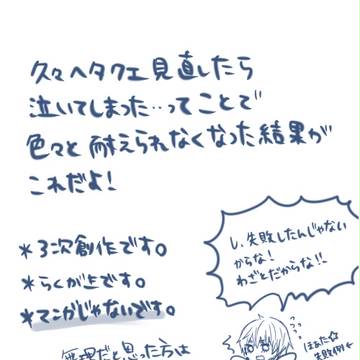 久々ヘタクエ見直したら
泣いてしまった…ってことで
色々と耐えられなくなった結果が
これだよ！
＊3次創作です。
＊らくがきです。
＊マンガじゃないです。
無理だと思った方は
し、失敗したんじゃない
からな！
わざとだからな！！
ほあた☆
失敗例←